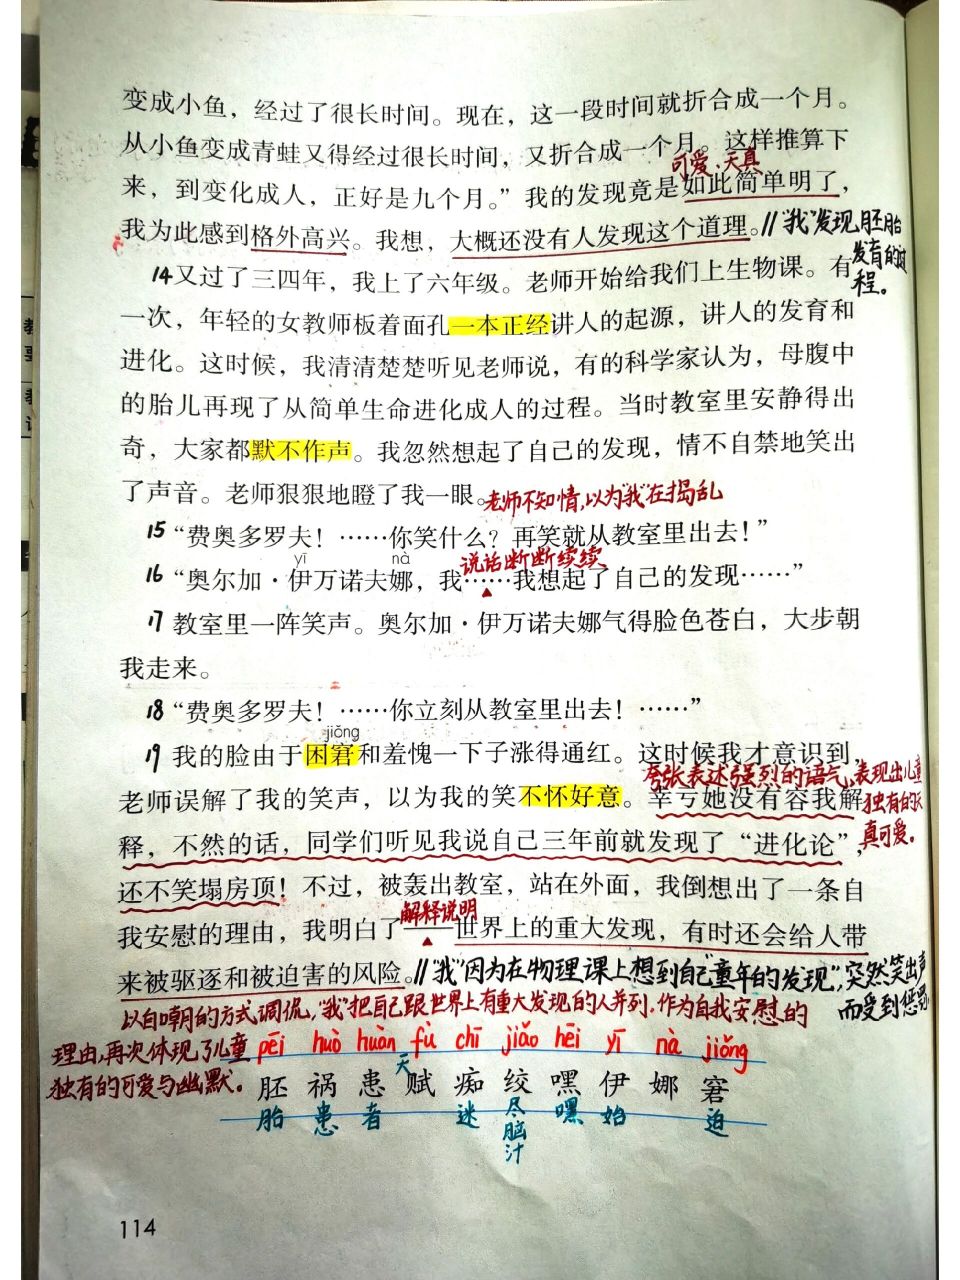 变成小鱼，经过了很长时间。现在，这一段时间就折合成一个月。
从小鱼变成青蛙又得经过很长时间，又折合成一个月。这样推算下
可爱、天真
来，到变化成人，正好是九个月。”我的发现竟是如此简单明了，
我为此感到格外高兴。我想，大概还没有人发现这个道理。//“我”发现胚胎
发育的过
程。
14又过了三四年，我上了六年级。老师开始给我们上生物课。有
一次，年轻的女教师板着面孔一本正经讲人的起源，讲人的发育和
进化。这时候，我清清楚楚听见老师说，有的科学家认为，母腹中
的胎儿再现了从简单生命进化成人的过程。当时教室里安静得出
奇，大家都默不作声。我忽然想起了自己的发现，情不自禁地笑出
了声音。老师狠狠地瞪了我一眼。老师不知情，以为“我”在捣乱
15“费奥多罗夫！……你笑什么？再笑就从教室里出去！”
yī nà 说话断断续续
16“奥尔加·伊万诺夫娜，我……我想起了自己的发现……”
17教室里一阵笑声。奥尔加·伊万诺夫娜气得脸色苍白，大步朝
我走来。
18“费奥多罗夫！……你立刻从教室里出去！……”
jiǒng
19我的脸由于困窘和羞愧一下子涨得通红。这时候我才意识到，
夸张表述强烈的语气，表现出儿童
独有的天
真可爱。
老师误解了我的笑声，以为我的笑不怀好意。幸亏她没有容我解
释，不然的话，同学们听见我说自己三年前就发现了“进化论”，
还不笑塌房顶！不过，被轰出教室，站在外面，我倒想出了一条自
解释说明
我安慰的理由，我明白了——世界上的重大发现，有时还会给人带
来被驱逐和被迫害的风险。//“我”因为在物理课上想到自己“童年的发现”，突然笑出声
而受到惩罚
以自嘲的方式调侃，“我”把自己跟世界上有重大发现的人并列，作为自我安慰的
理由，再次体现了儿童
独有的可爱与幽默。
pēi huò huàn fù chī jiǎo hēi yī nà jiǒng
天
胚 祸 患 赋 痴 绞 嘿 伊 娜 窘
胎 患 者 迷 尽脑汁 嘿 始 迫
114